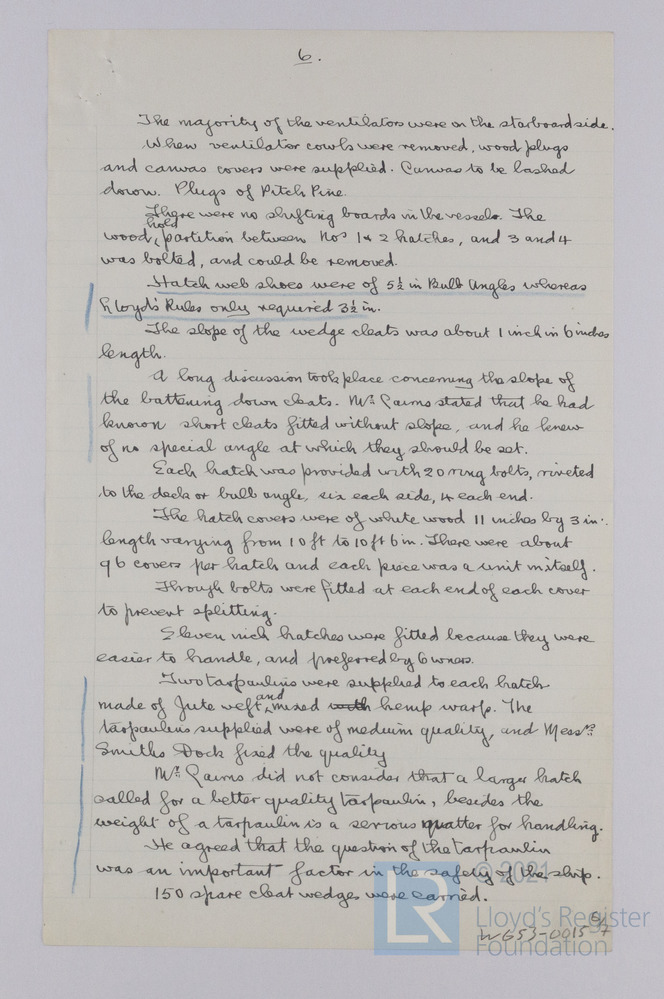 6.
The majority of the ventilators were on the starboard side.
When ventilator cowls were removed, wood plugs
and canvas covers were supplied. Canvas to be lashed
down. Plugs of Pitch Pine.
There were no shifting boards in the vessels. The
hold
wood, partition between Nos 1 & 2 hatches, and 3 and 4
was bolted, and could be removed.
Hatch web shoes were of 5½ in Bulb Angles whereas
Lloyd's Rules only required 3½ in.
The slope of the wedge cleats was about 1 inch in 6 inches
length.
A long discussion took place concerning the slope of
the battening down cleats. Mr. Cairns stated that he had
known short cleats fitted without slope, and he knew
of no special angle at which they should be set.
Each hatch was provided with 20 ring bolts, riveted
to the deck or bulb angle, six each side, 4 each end.
The hatch covers were of white wood 11 inches by 3 in:.
length varying from 10 ft to 10 ft 6 in. There were about
96 covers per hatch and each piece was a unit in itself.
Through bolts were fitted at each end of each cover
to prevent splitting.
Eleven inch hatches were fitted because they were
easier to handle, and preferred by Owners.
Two tarpaulins were supplied to each hatch
made of Jute weft and mixed with hemp warp. The
tarpaulins supplied were of medium quality, and Messrs
Smiths Dock fixed the quality
Mr. Cairns did not consider that a larger hatch
called for a better quality tarpaulin, besides the
weight of a tarpaulin is a serious matter for handling.
He agreed that the question of the tarpaulin
was an important factor in the safety of the ship.
150 spare cleat wedges were carried.
© 2021
LR
Lloyd's Register
Foundation
W653-0015 6/7